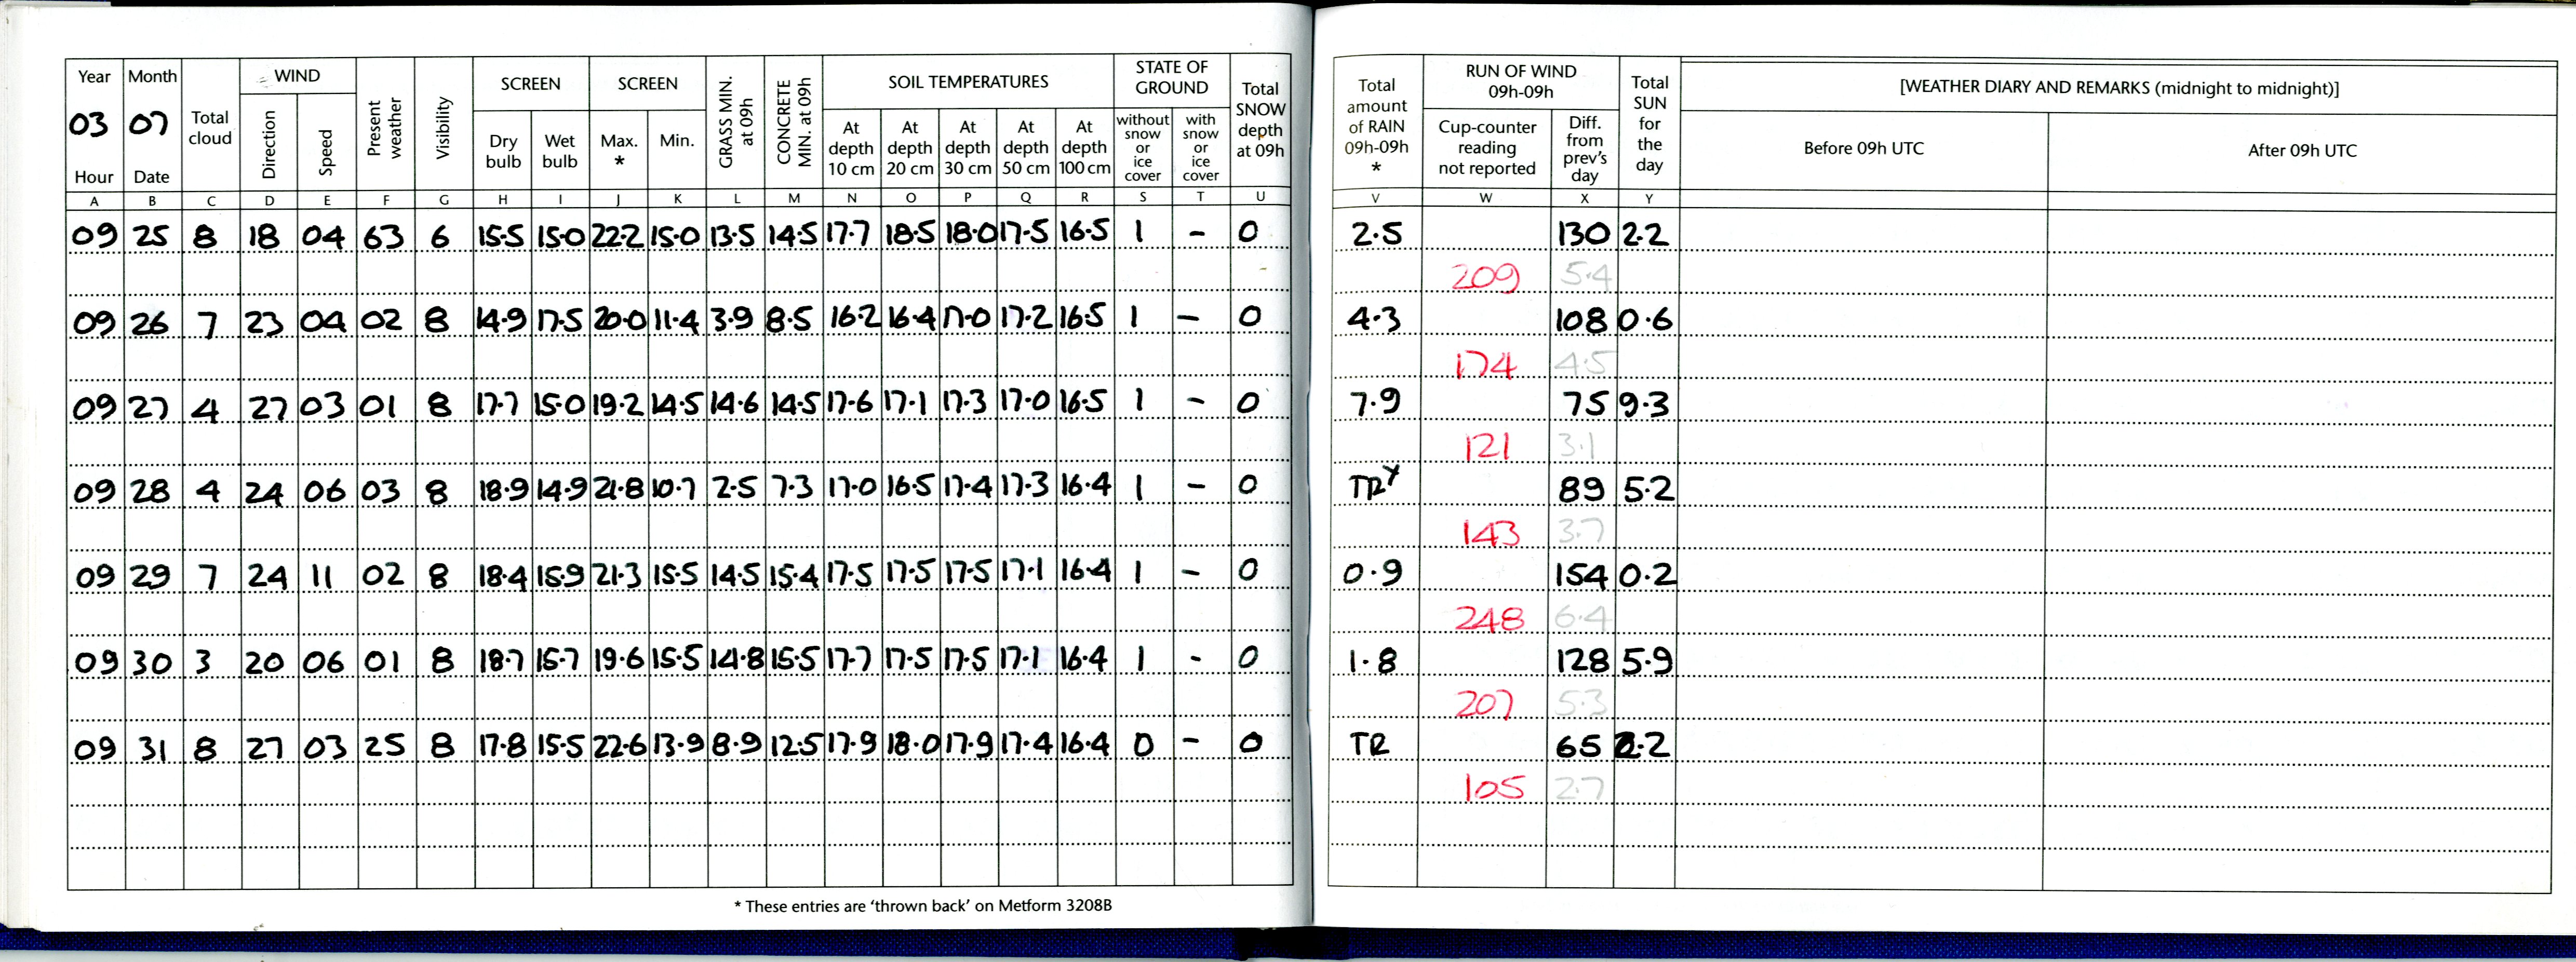 Year Month Total cloud WIND Present weather Visibility SCREEN SCREEN GRASS MIN. at 09h CONCRETE MIN. at 09h SOIL TEMPERATURES STATE OF GROUND Total SNOW depth at 09h Total amount of RAIN 09h-09h * RUN OF WIND 09h-09h Total SUN for the day [WEATHER DIARY AND REMARKS (midnight to midnight)]
03 07 Direction Speed Dry bulb Wet bulb Max. * Min. At depth 10 cm At depth 20 cm At depth 30 cm At depth 50 cm At depth 100 cm without snow or ice cover with snow or ice cover Cup-counter reading not reported Diff. from prev's day Before 09h UTC After 09h UTC
Hour Date
A B C D E F G H I J K L M N O P Q R S T U V W X Y
09 25 8 18 04 63 6 15.5 15.0 22.2 15.0 13.5 14.5 17.7 18.5 18.0 17.5 16.5 1 - 0 2.5 130 2.2
209 5.4
09 26 7 23 04 02 8 14.9 17.5 20.0 11.4 3.9 8.5 16.2 16.4 17.0 17.2 16.5 1 - 0 4.3 108 0.6
174 4.5
09 27 4 27 03 01 8 17.7 15.0 19.2 14.5 14.6 14.5 17.6 17.1 17.3 17.0 16.5 1 - 0 7.9 75 9.3
121 3.1
09 28 4 24 06 03 8 18.9 14.9 21.8 10.7 2.5 7.3 17.0 16.5 17.4 17.3 16.4 1 - 0 TR 89 5.2
143 3.7
09 29 7 24 11 02 8 18.4 15.9 21.3 15.5 14.5 15.4 17.5 17.5 17.5 17.1 16.4 1 - 0 0.9 154 0.2
248 6.4
09 30 3 20 06 01 8 18.7 15.7 19.6 15.5 14.8 15.5 17.7 17.5 17.5 17.1 16.4 1 - 0 1.8 128 5.9
207 5.3
09 31 8 27 03 25 8 17.8 15.5 22.6 13.9 8.9 12.5 17.9 18.0 17.9 17.4 16.4 0 - 0 TR 65 2.2
105 2.7
* These entries are 'thrown back' on Metform 3208B